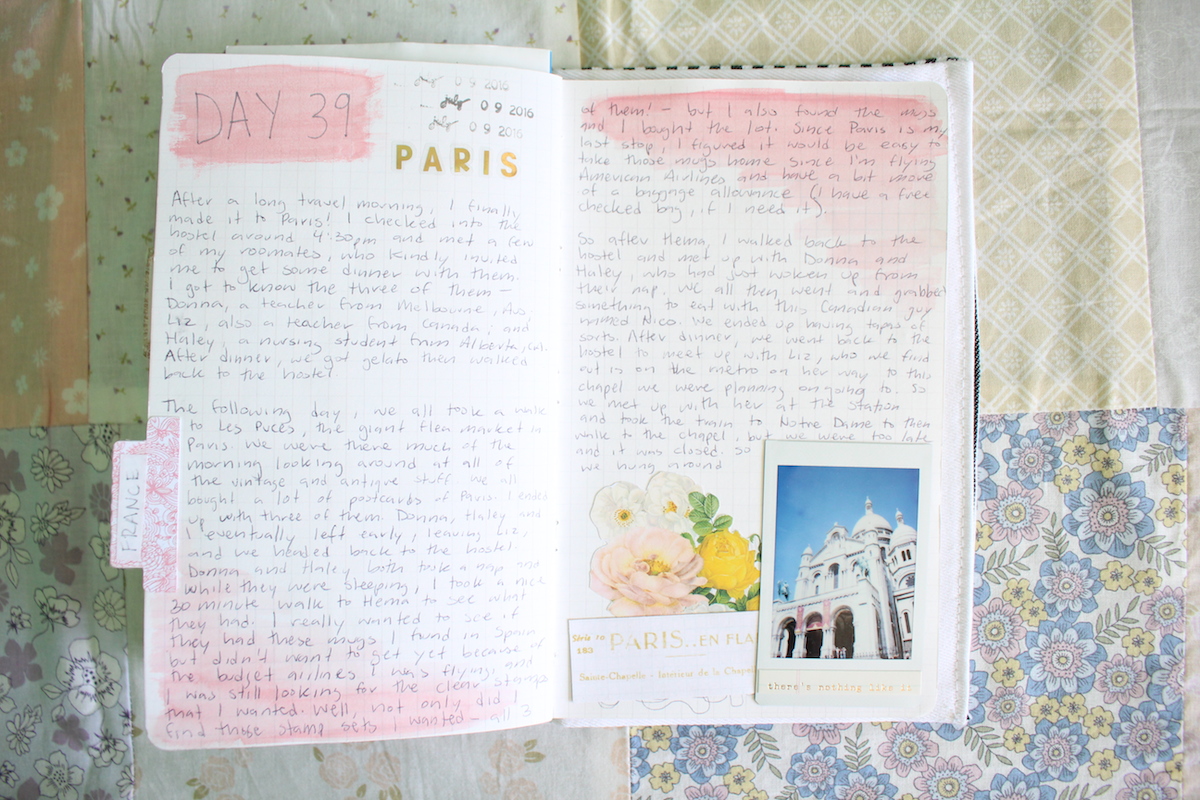 DAY 39
july 09 2016
july 09 2016
july 09 2016
PARIS
After a long travel morning, I finally
made it to Paris! I checked into the
hostel around 4:30pm and met a few
of my roomates, who kindly invited
me to get some dinner with them.
I got to know the three of them –
Donna, a teacher from Melbourne, Aus;
Liz, also a teacher from Canada; and
Haley, a nursing student from Alberta, Can.
After dinner, we got gelato then walked
back to the hostel.
The following day, we all took a walk
to Les Puces, the giant flea market in
Paris. We were there much of the
morning looking around at all of
the vintage and antique stuff. We all
bought a lot of postcards of Paris. I ended
up with three of them. Donna, Haley and
I eventually left early, leaving Liz,
and we headed back to the hostel.
Donna and Haley both took a nap and
while they were sleeping, I took a nice
30 minute walk to Hema to see what
they had. I really wanted to see if
they had these mugs I found in Spain
but didn't want to get yet because of
the budget airlines I was flying, and
I was still looking for the clear stamps
that I wanted. Well, not only did I
find those stamp sets I wanted – all 3
FRANCE
of them! – but I also found the mugs
and I bought the lot. Since Paris is my
last stop, I figured it would be easy to
take those mugs home since I'm flying
American Airlines and have a bit more
of a baggage allowance (I have a free
checked bag, if I need it).
So after Hema, I walked back to the
hostel and met up with Donna and
Haley, who had just woken up from
their nap. We all then went and grabbed
something to eat with this Canadian guy
named Nico. We ended up having tapas of
sorts. After dinner, we went back to the
hostel to meet up with Liz, who we find
out is on the metro on her way to this
chapel we were planning on going to. So
we met up with her at the station
and took the train to Notre Dame to then
walk to the chapel, but we were too late
and it was closed. So
we hung around
Série 10
183
PARIS..EN FLA
Sainte-Chapelle - Intérieur de la Chapelle
there's nothing like it